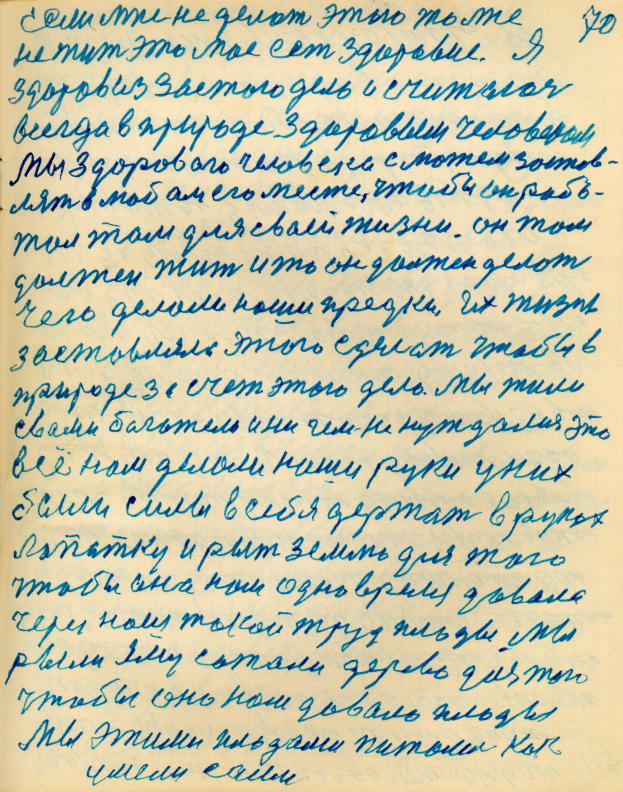 если мне не делат этого то мне 70
не жит это мое сет здоровие. Я
здоров из за етого дель и считался
всегда в природе здоровым человеком
мы здорового человека сможем застов-
лять в мобам его месте, чтобы он робь-
тол там для своей жизни. он там
должен жит и то он должен делот
чего делоли ноши предки, их жизнь
зостовляла этого сделат чтобы в
природе за счет этого дело. мы жили
свами богатель и ни чем не нуждолися это
всё ном делоли ноши руки у них
были силы в себя держат в руках
лопатку и рыт землю для того
чтобы она ном одно время довала
через нош токой труд плоды мы
рыли яму сажали дерево для того
чтобы оно ном довало плоды
мы этими плодами питоли как
умели сами